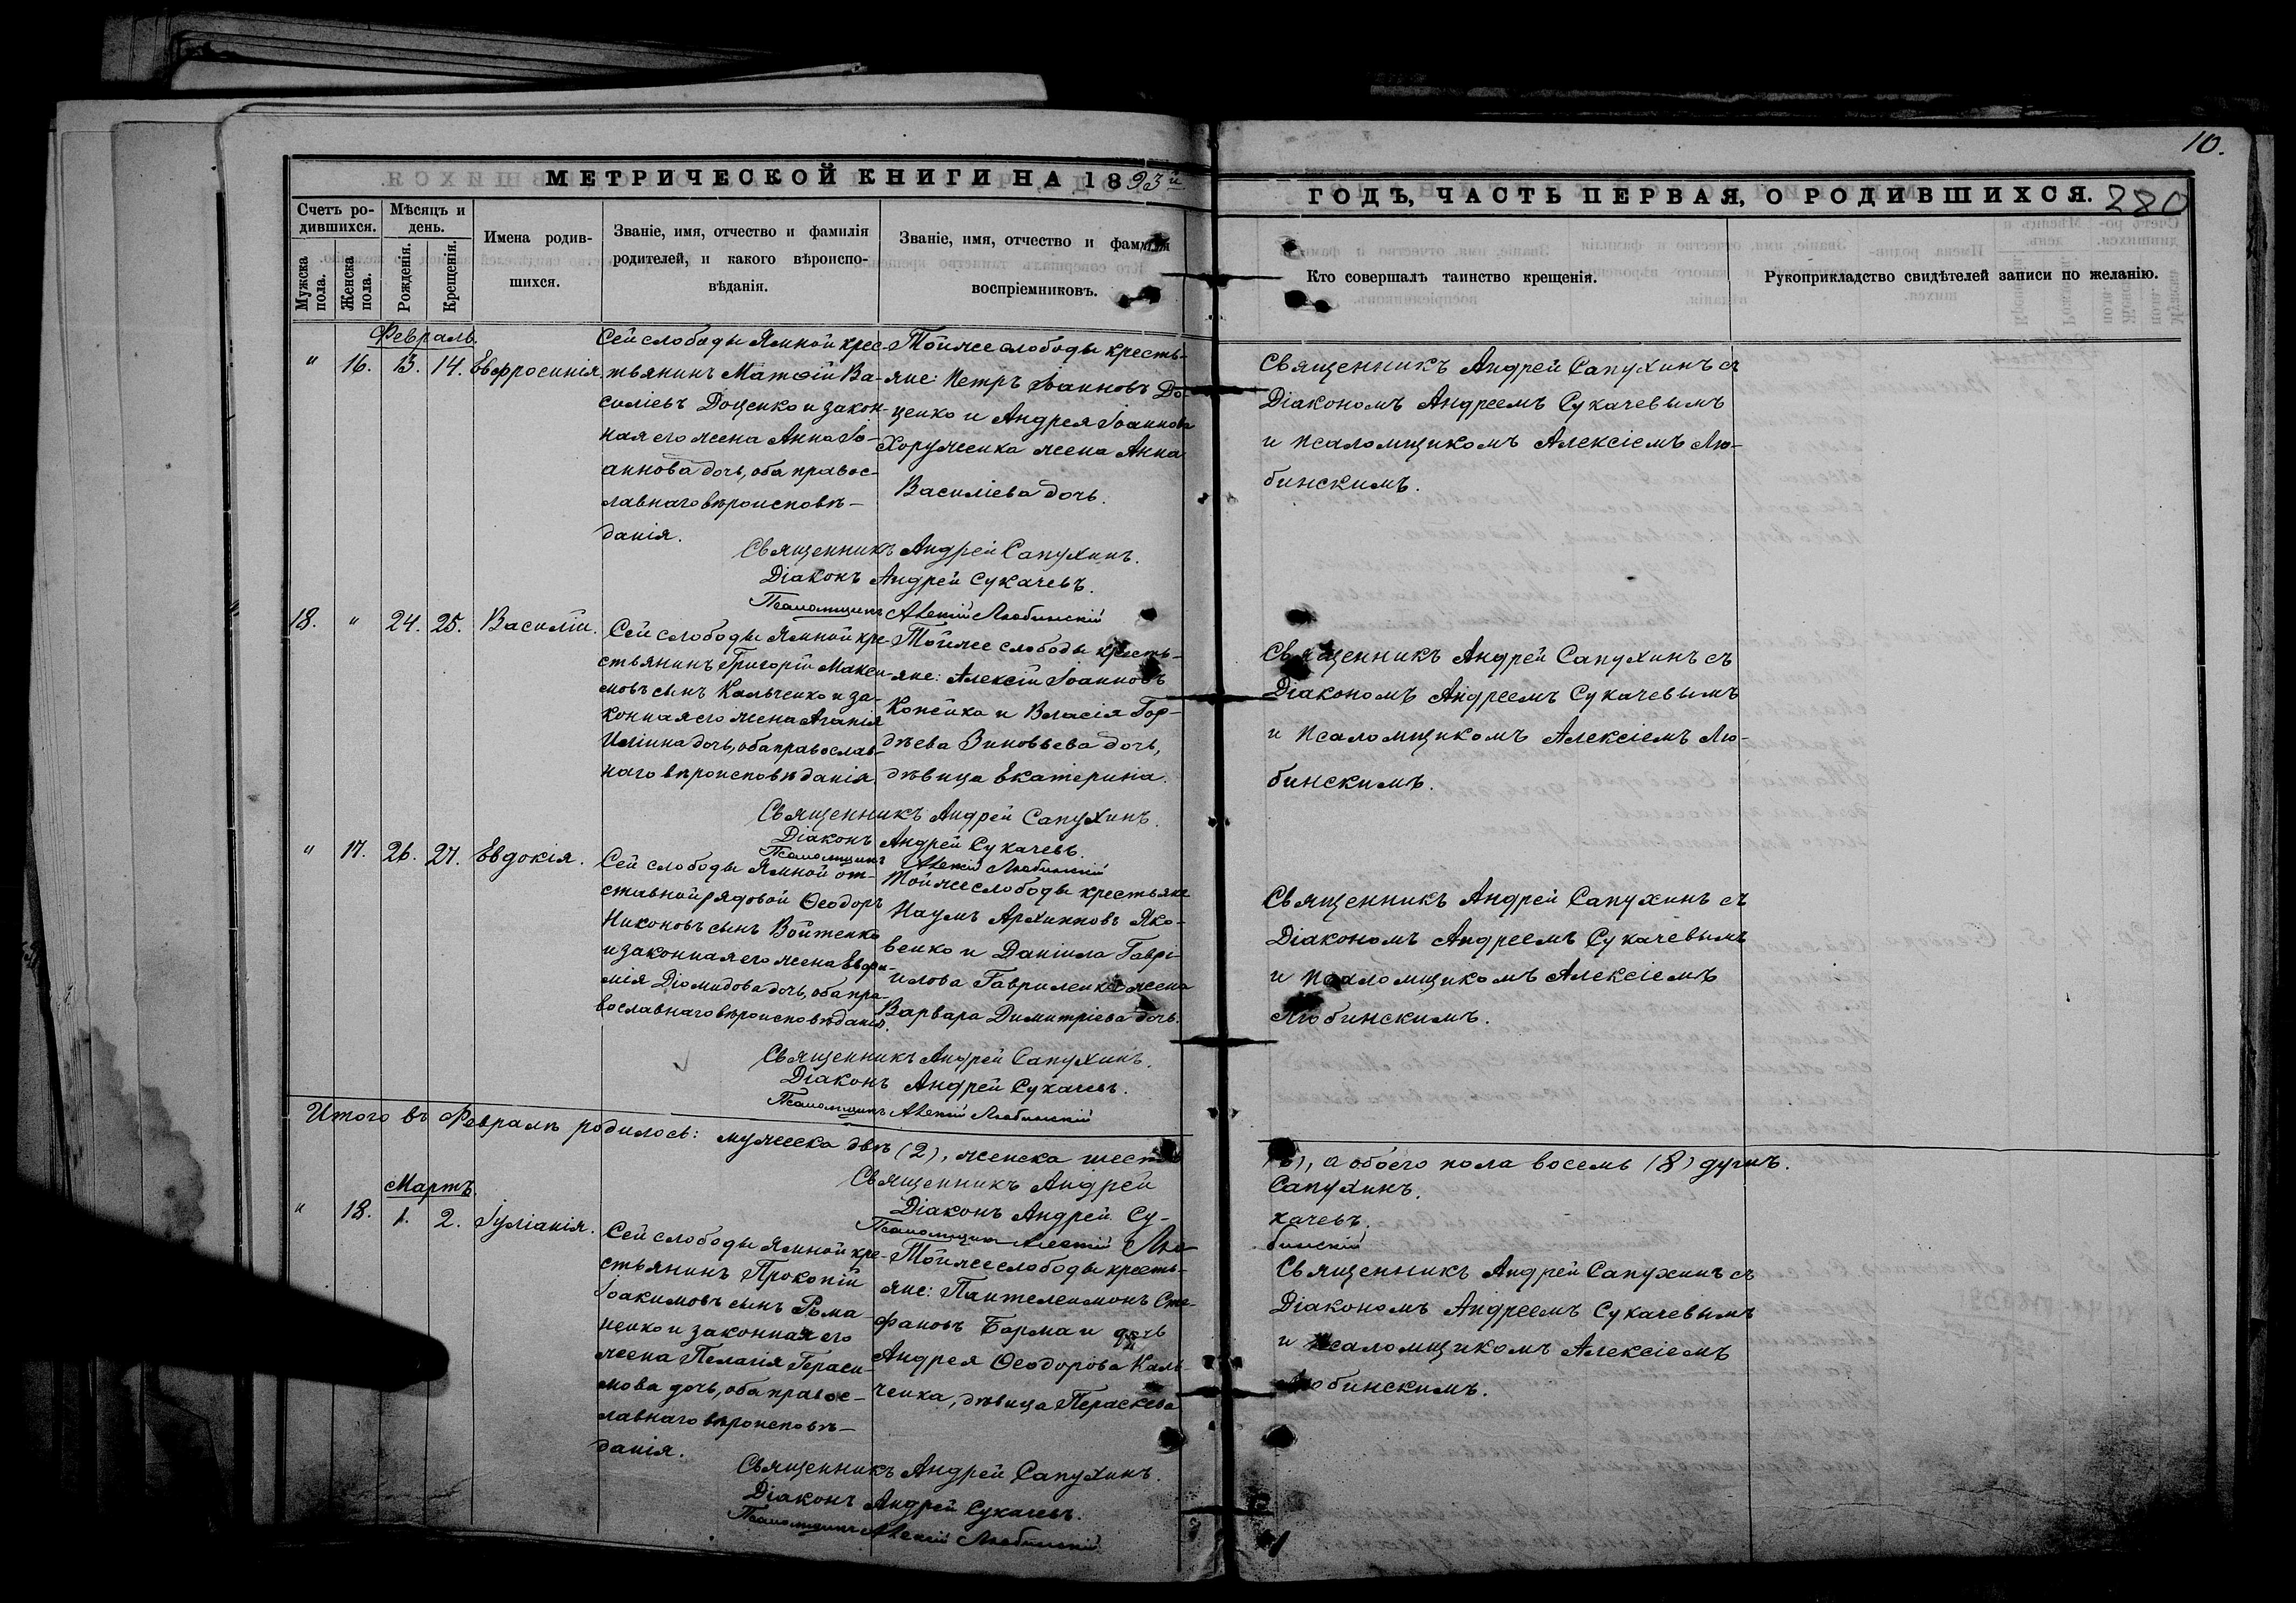 10.
МЕТРИЧЕСКОЙ КНИГИ НА 1893й
ГОДЪ, ЧАСТЬ ПЕРВАЯ, О РОДИВШИХСЯ. 280
Счетъ ро-
дившихся.
Мужска
пола.
Женска
пола.
Мѣсяцъ и
день.
Рожденія.
Крещенія.
Имена родив-
шихся.
Званіе, имя, отчество и фамилія
родителей, и какого вѣроиспо-
вѣданія.
Званіе, имя, отчество и фамилія
воспріемниковъ.
Кто совершалъ таинство крещенія.
Рукоприкладство свидѣтелей записи по желанію.
Февраль.
" 16. 13. 14. Евфросинія.
Сей слободы Ямной крес-
тьянинъ Матѳій Ва-
силіевъ Доценко и закон-
ная его жена Анна Іо-
аннова дочь, оба правос-
лавнаго вѣроисповѣ-
данія.
Тойже слободы кресть-
яне: Петръ Іоанновъ До-
ценко и Андрея Іоаннова
Хоруженка жена Анна
Василіева дочь.
Священникъ Андрей Сапухинъ съ
Діакономъ Андреемъ Сукачевымъ
и псаломщикомъ Алексіемъ Лю-
бинскимъ.
Священникъ Андрей Сапухинъ.
Діаконъ Андрей Сукачевъ.
Псаломщикъ Алексій Любинскій
18. " 24. 25. Василій.
Сей слободы Ямной кре-
стьянинъ Григорій Макси-
мовъ сынъ Кальченко и за-
конная его жена Агапія
Иліина дочь, оба православ-
наго вѣроисповѣданія.
Тойже слободы кресть-
яне: Алексій Іоанновъ
Копейко и Власія Гор-
дѣева Зиновьева дочь,
дѣвица Екатерина.
Священникъ Андрей Сапухинъ съ
Діакономъ Андреемъ Сукачевымъ
и псаломщикомъ Алексіемъ Лю-
бинскимъ.
Священникъ Андрей Сапухинъ.
Діаконъ Андрей Сукачевъ.
Псаломщикъ Алексій Любинскій
" 17. 26. 27. Евдокія.
Сей слободы Ямной от-
ставной рядовой Ѳеодоръ
Никоновъ сынъ Войтенко
и законная его жена Евфи-
мія Діомидова дочь, оба пра-
вославнаго вѣроисповѣданія.
Тойже слободы крестьяне
Наумъ Архипповъ Яко-
венко и Даніила Гаврі-
илова Гавриленка жена
Варвара Димитріева дочь.
Священникъ Андрей Сапухинъ съ
Діакономъ Андреемъ Сукачевымъ
и псаломщикомъ Алексіемъ
Любинскимъ.
Священникъ Андрей Сапухинъ.
Діаконъ Андрей Сукачевъ.
Псаломщикъ Алексій Любинскій
Итого въ Февралѣ родилось: мужеска двѣ (2), женска шесть
(6), а обоего пола восемь (8) душъ.
Священникъ Андрей Сапухинъ.
Діаконъ Андрей Сукачевъ.
Псаломщикъ Алексій Любинскій
Мартъ.
" 18. 1. 2. Іуліанія.
Сей слободы Ямной кре-
стьянинъ Прокопій
Іоакимовъ сынъ Рома
ненко и законная его
жена Пелагія Гераси-
мова дочь, оба правос-
лавнаго вѣроисповѣ-
данія.
Тойже слободы кресть-
яне: Пантелеимонъ Сте-
фановъ Борма и дочь
Андрея Ѳеодорова Каль
ченка, дѣвица Параскева
Священникъ Андрей Сапухинъ съ
Діакономъ Андреемъ Сукачевымъ
и псаломщикомъ Алексіемъ
Любинскимъ.
Священникъ Андрей Сапухинъ.
Діаконъ Андрей Сукачевъ.
Псаломщикъ Алексій Любинскій